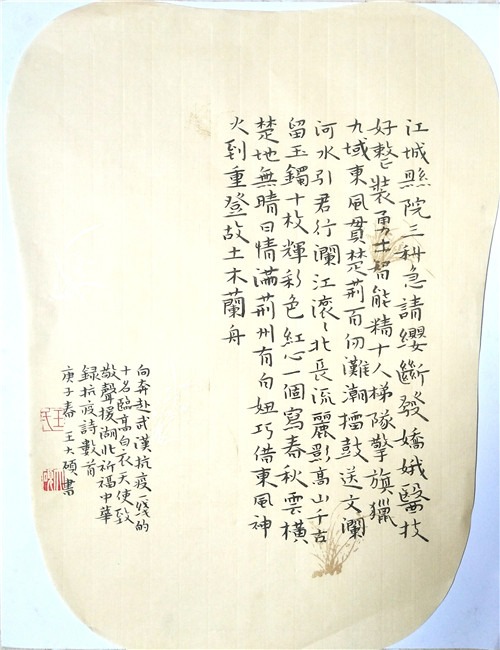 江城縣院三科急請纓斷發嬌娥醫技
好整裝勇士智能精十人梯隊擎旗獵
九域東風貫楚荊百仞灘潮擂鼓送文瀾
河水引君行瀾江滾〻北長流麗影高山千古
留玉鐲十枚輝彩色紅心一個寫春秋雲橫
楚地無晴日情滿荊州有向妞巧借東風神
火到重登故土木蘭舟
向奔赴武漢抗疫一綫的
十名臨高白衣天使致
敬聲援湖北祈福中華
錄抗疫詩數首
庚子春王大碩書
王氏